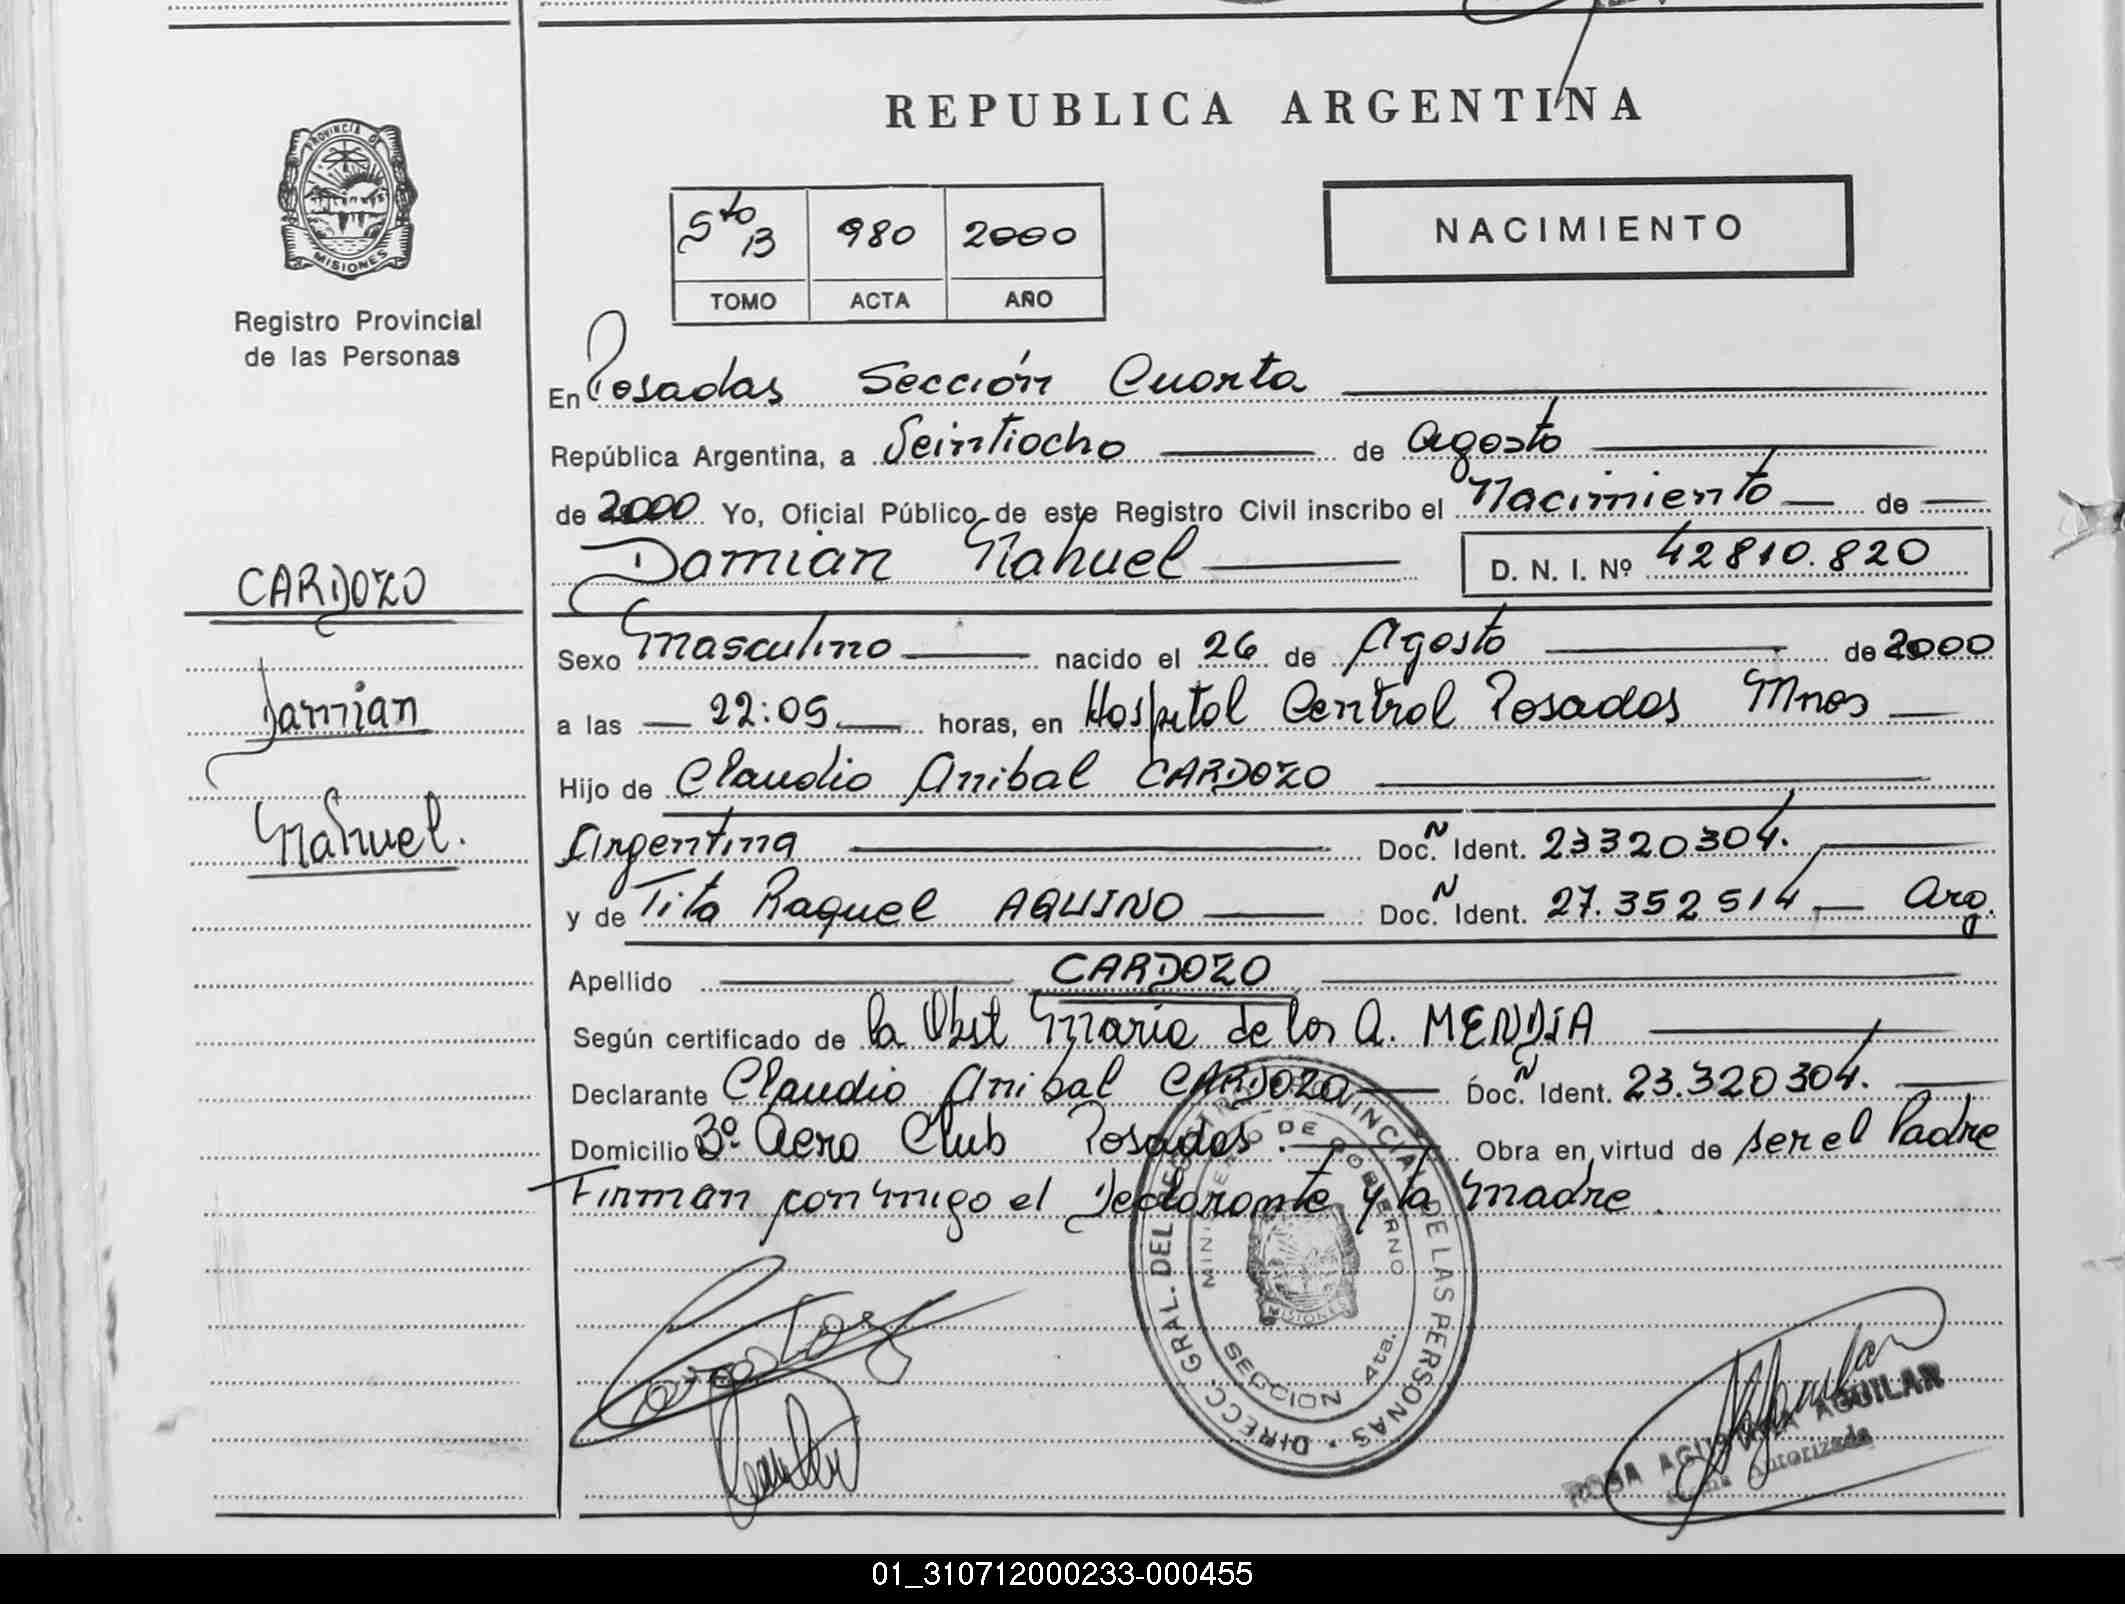 REPUBLICA ARGENTINA
PROVINCIA DE
MISIONES
Registro Provincial
de las Personas
5to B 980 2000
TOMO ACTA AÑO
NACIMIENTO
En Posadas Sección Cuarta
República Argentina, a Veintiocho de Agosto
de 2000 Yo, Oficial Público de este Registro Civil inscribo el Nacimiento de
Damian Nahuel D. N. I. Nº 42810.820
CARDOZO
Damian
Nahuel.
Sexo Masculino nacido el 26 de Agosto de 2000
a las 22:05 horas, en Hospital Central Posadas Mnes
Hijo de Claudio Anibal CARDOZO
Argentina Doc. N Ident. 23320304.
y de Tita Raquel AQUINO Doc. N Ident. 27.352514 Arg.
Apellido CARDOZO
Según certificado de la Obst Maria de los A. MENDIA
Declarante Claudio Anibal CARDOZO Doc. N Ident. 23.320304.
Domicilio Bº Aero Club Posadas. Obra en virtud de ser el Padre
Firman conmigo el Declarante y la Madre.
DIRECC. GRAL. DEL REGISTRO PROVINCIAL DE LAS PERSONAS
MINISTERIO DE GOBIERNO
MISIONES
SECCION 4ta.
ROSA AGUILAR
Autorizada
01_310712000233-000455